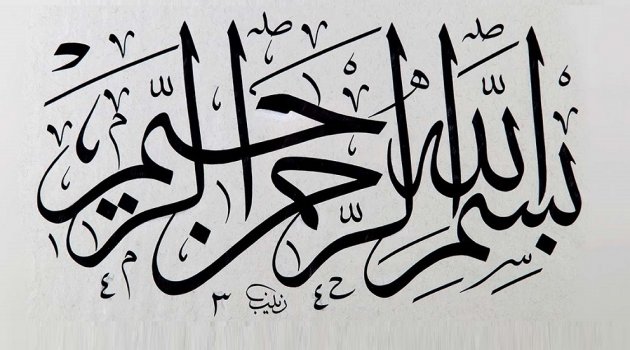 بِسْمِ اللّٰهِ الرَّحْمٰنِ الرَّحِيمِ
زينب